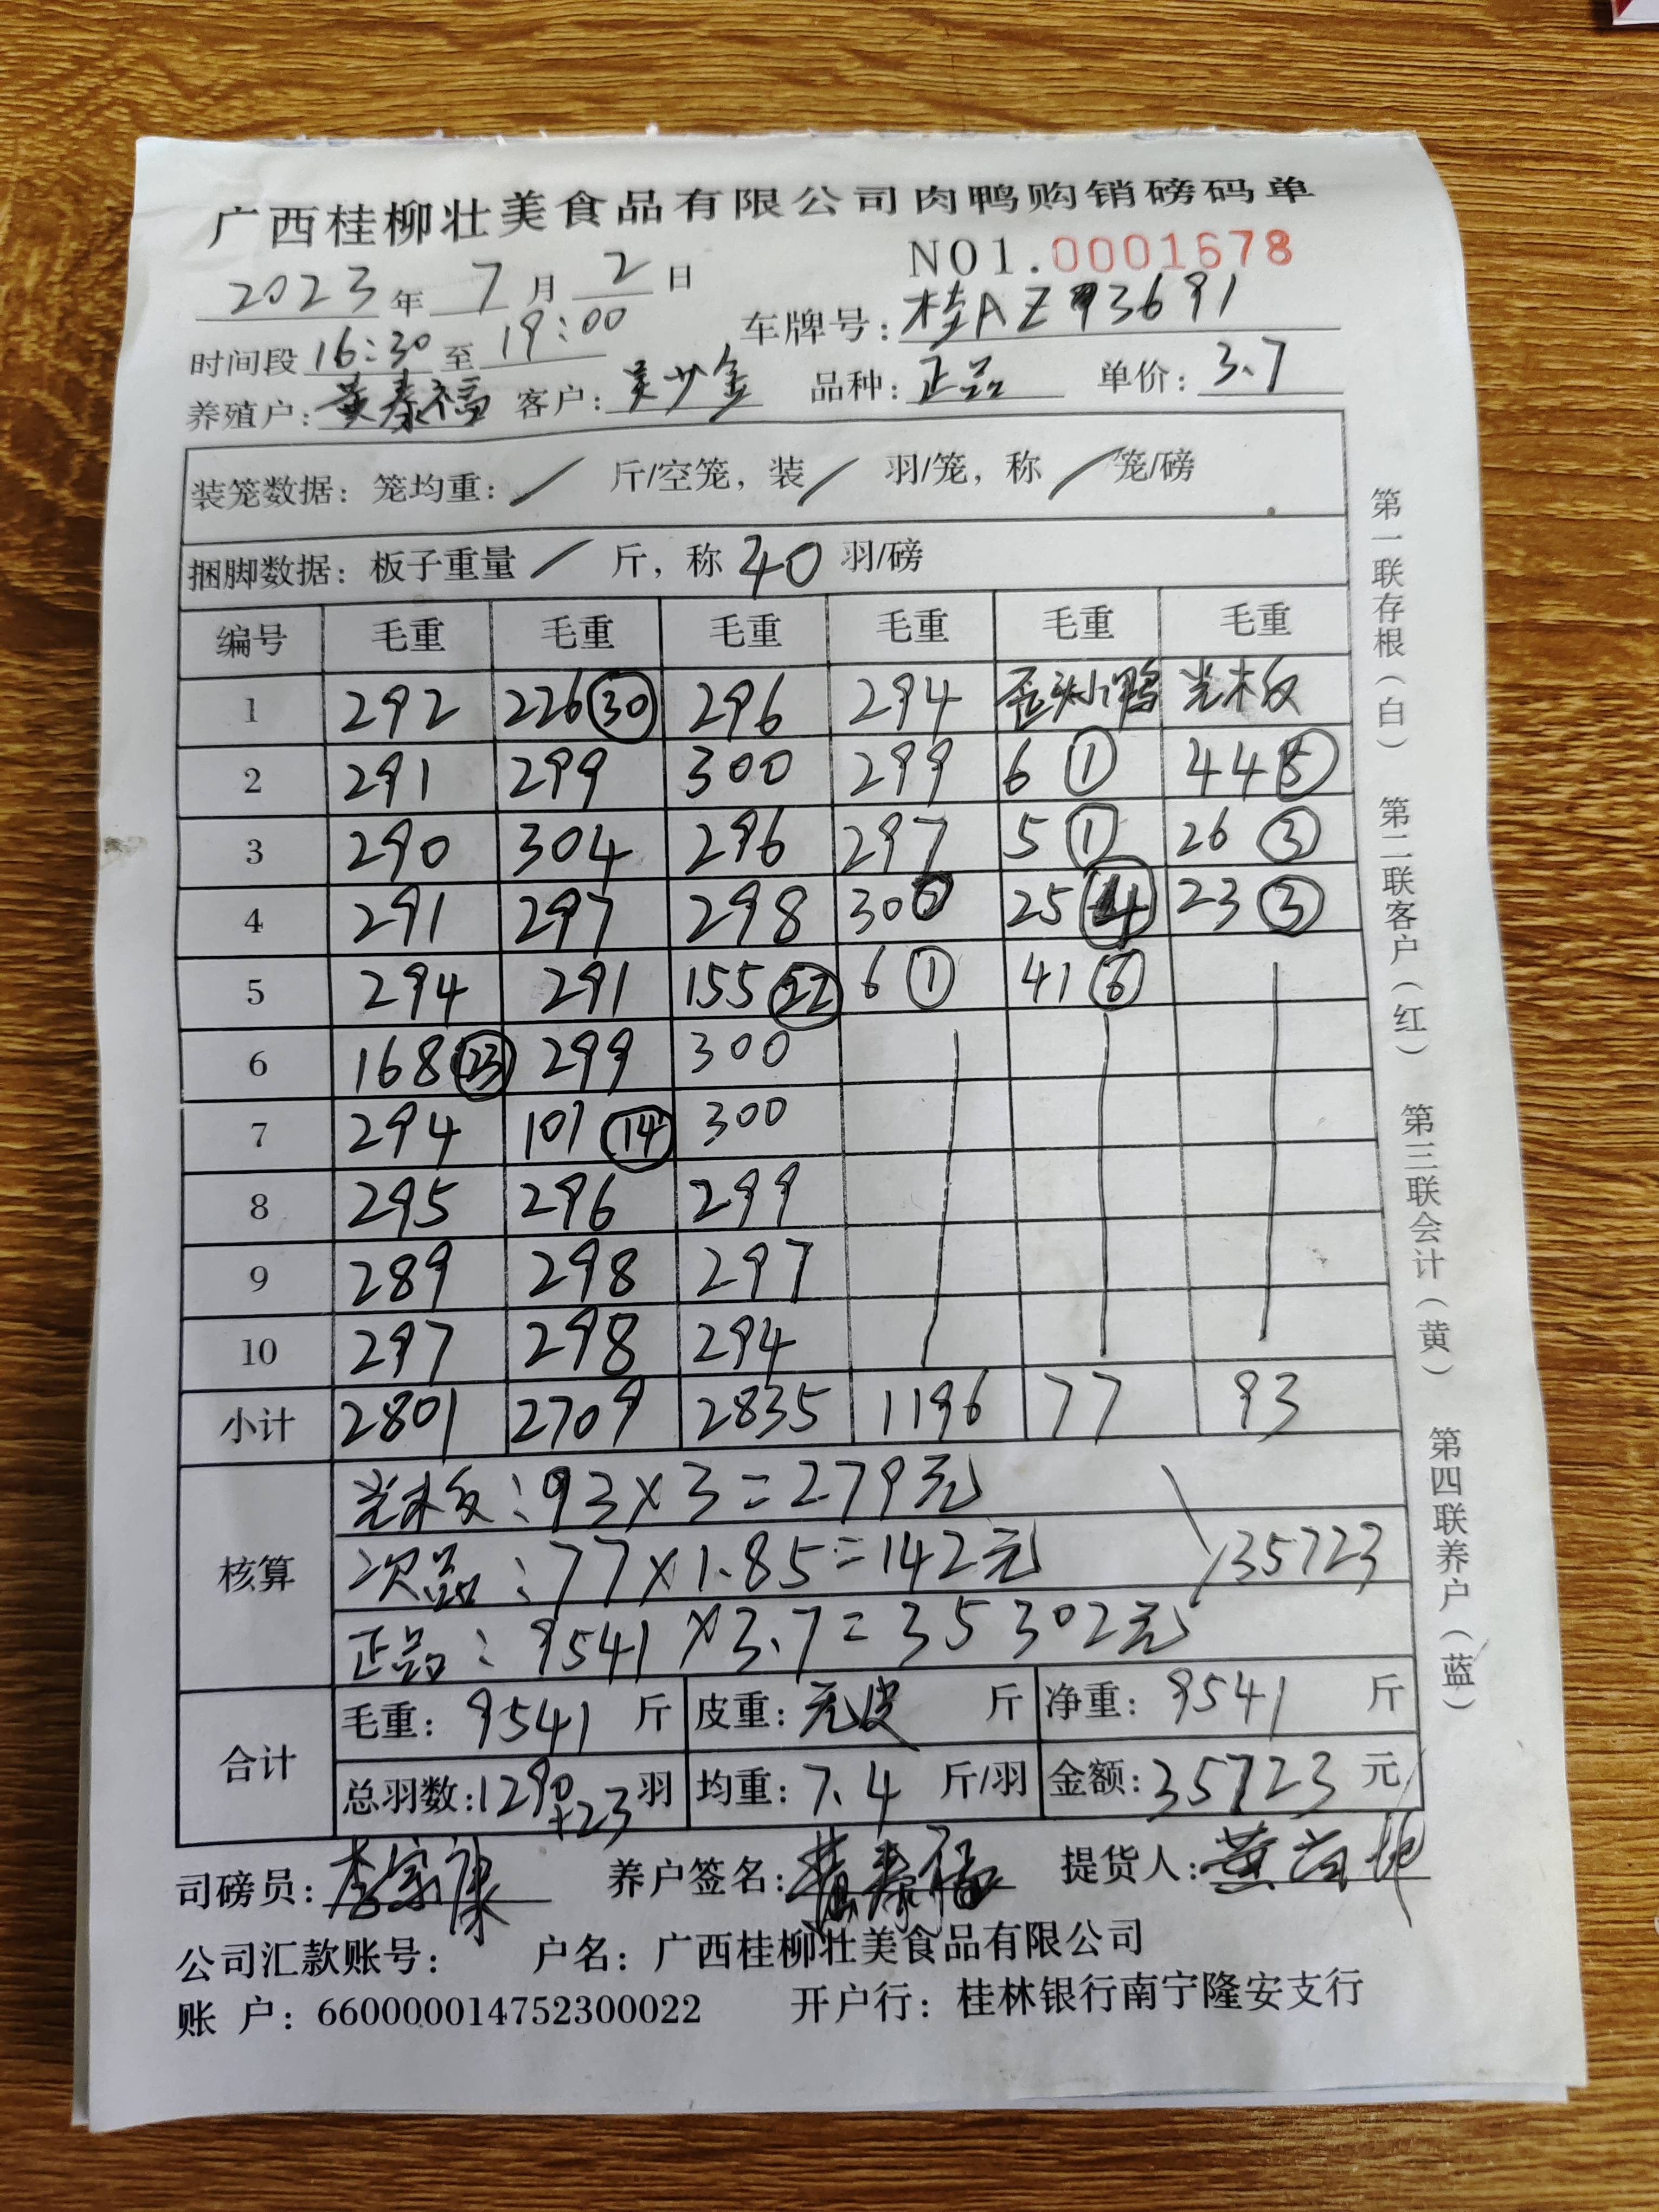 广西桂柳壮美食品有限公司肉鸭购销磅码单
NO1.0001678
2023年7月2日
时间段16:30至19:00 车牌号:桂AZ93691
养殖户:黄泰福 客户:吴少金 品种:正品 单价:3.7
装笼数据:笼均重:/ 斤/空笼,装/ 羽/笼,称/笼/磅
捆脚数据:板子重量/ 斤,称40羽/磅
编号 毛重 毛重 毛重 毛重 毛重 毛重
1 292 226㉚ 296 294 歪头小鸭 光板
2 291 299 300 299 6① 44⑧
3 290 304 296 297 5① 26③
4 291 297 298 300 25④ 23③
5 294 291 155㉒ 6① 41⑥
6 168㉓ 299 300
7 294 101⑭ 300
8 295 296 299
9 289 298 297
10 297 298 294
小计 2801 2709 2835 1196 77 93
核算
光板:93×3=279元
次品:77×1.85=142元 35723
正品:9541×3.7=35302元
合计
毛重:9541斤 皮重:无皮 斤 净重:9541斤
总羽数:1290+23羽 均重:7.4斤/羽 金额:35723元
司磅员:李家康 养户签名:黄泰福 提货人:黄
公司汇款账号: 户名:广西桂柳壮美食品有限公司
账 户:660000014752300022 开户行:桂林银行南宁隆安支行
第一联存根(白) 第二联客户(红) 第三联会计(黄) 第四联养户(蓝)